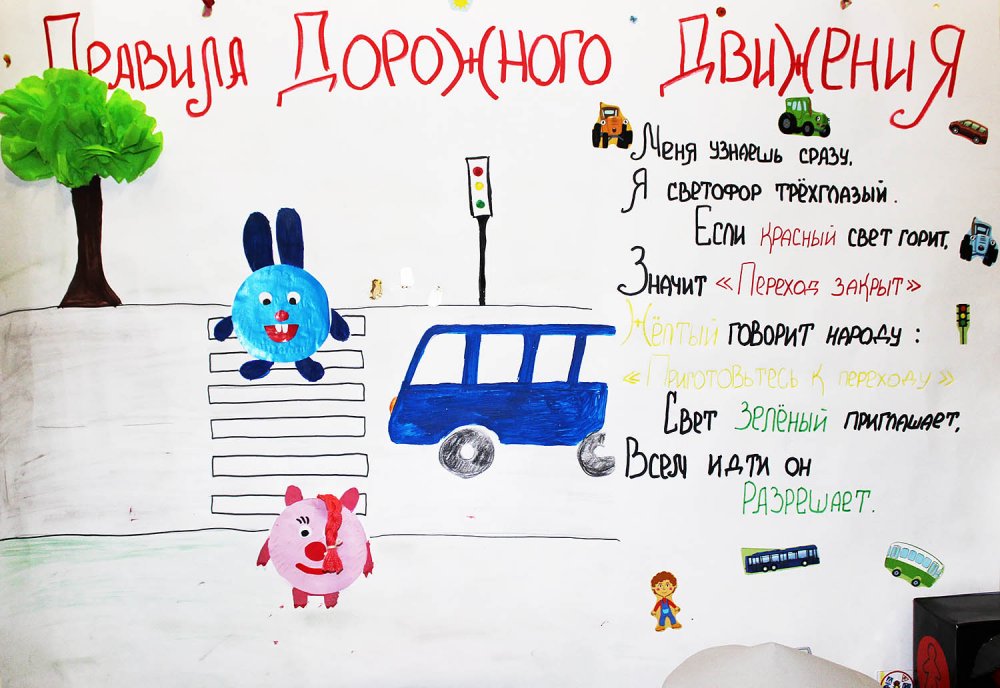 Правила Дорожного Движения
Меня узнаешь сразу,
Я светофор трёхглазый.
Если красный свет горит,
Значит «Переход закрыт»
Жёлтый говорит народу:
«Приготовьтесь к переходу»
Свет Зелёный приглашает,
Всем идти он
Разрешает.